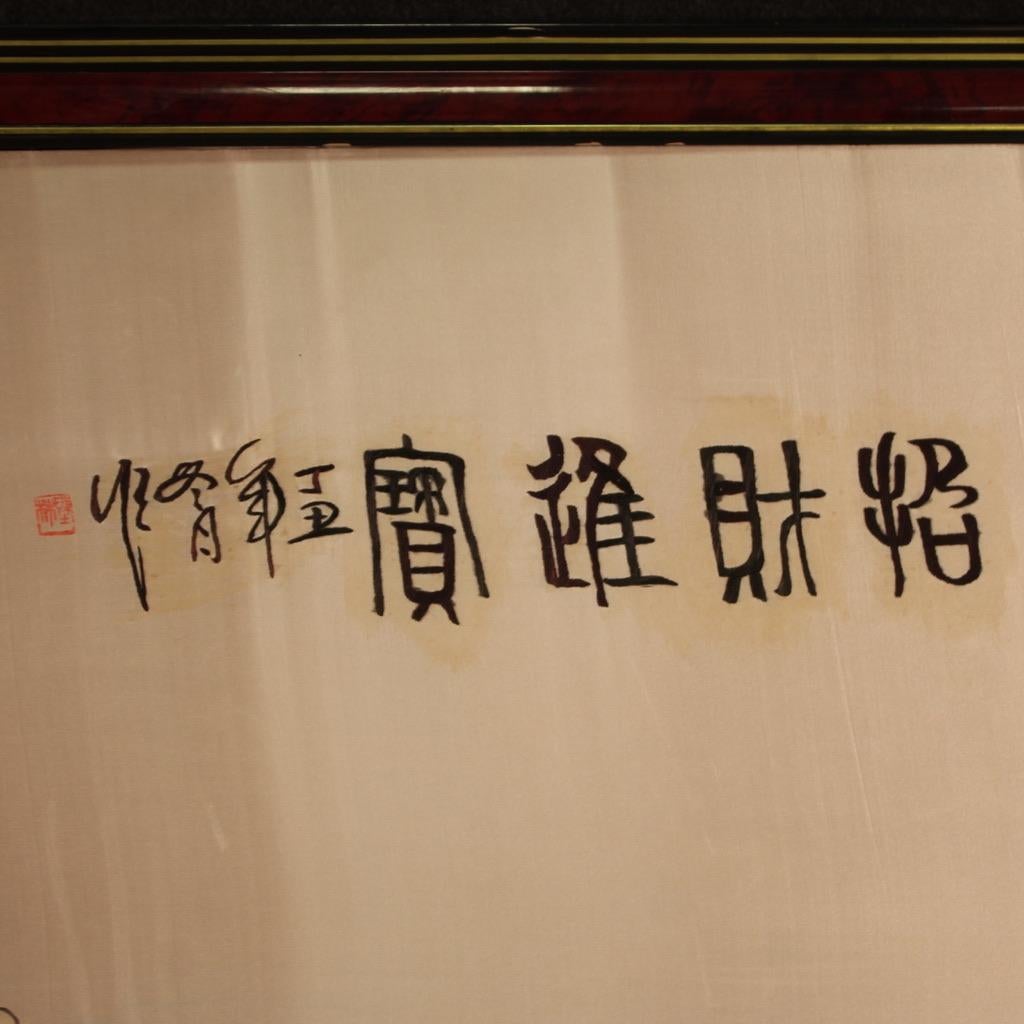 招財進寶 丁丑年冬月